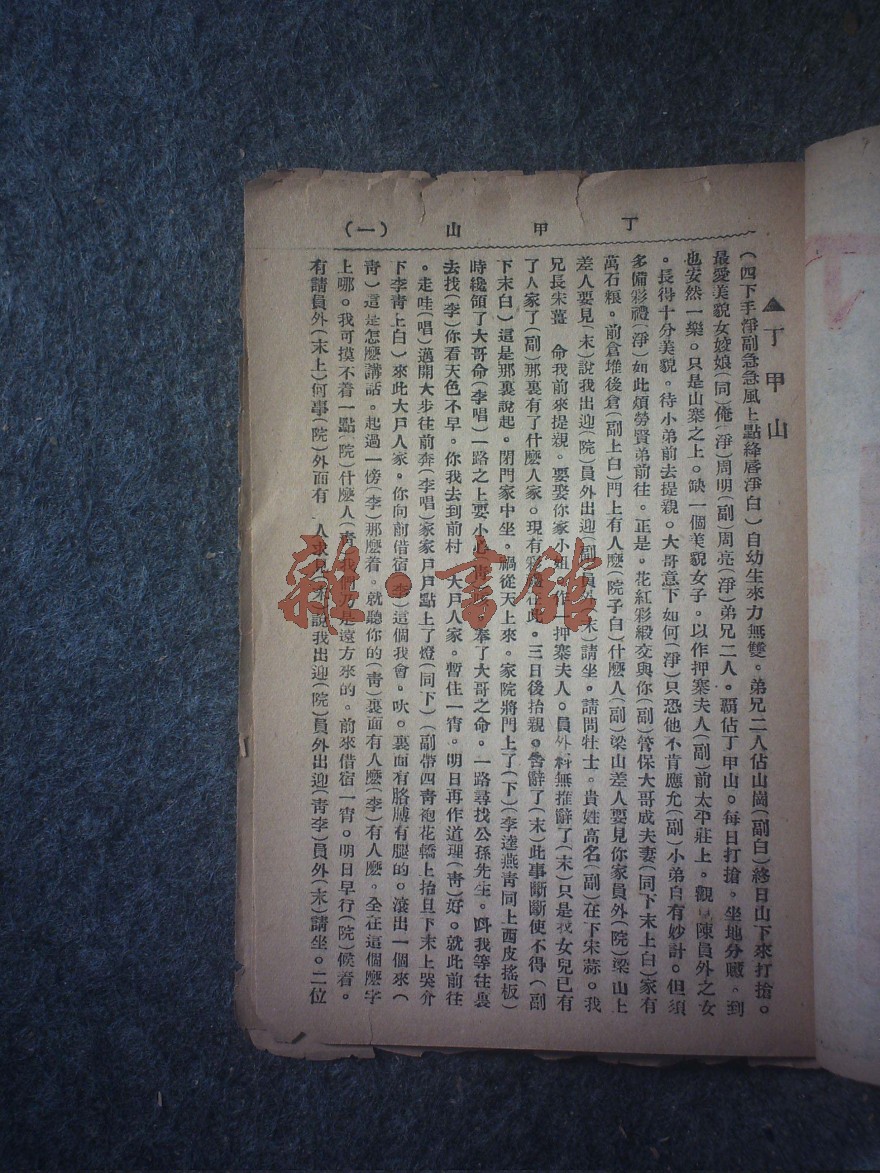 丁甲山（一）
▲丁甲山
（四下手淨副急急風上點絳唇淨白）自幼生來力無雙。弟兄二人佔山崗（副白）終日山下來打搶。
最愛美貌女姣娘（同）俺（淨）周明（副）周亮（淨）弟兄二人。覇佔丁甲山。每日打搶。坐地分贓。到
也安然一樂。只是山寨之上。缺一個美貌女子。以作押寨夫人（副）前太平莊上。觀 陳員外之女
。長得十分美貌。待小弟前去提親。大哥意下如何（淨）只恐他不肯應允（副）小弟自有妙計。但須
多備彩禮（淨）如此煩勞賢弟前往。正是。花紅彩緞交與你（副）管保大哥成夫妻（同下末上白）家有
萬石糧。前倉堆後倉（副上白）門上有人麽（院子白）什麽人（副）梁山差人要見你家員外（院）梁山上
差人要見（末）說我出迎（院）員外出迎（副）員外（末）請坐。請問壯士。貴姓高名（副）在下宋蒜。我
兄長宋薑 命我前來提親。要娶你家小姐。作 押寨夫人。員外料無推辭了（末）只是我女兒已有
了人家了（副）那裏有了什麽人家。現有彩禮在此。三日後抬親。告辭了（末）此事斷斷使不得（副
下末白）這是那裏說起。閉門家中坐。禍從天上來。家院將門上了（下）李逵燕青同上西皮搖板）
時纔領了大哥命（李唱）一路之上要小心（青 奉了大哥之命。一路尋找公孫先生。 我等往裏
去找（李）你看天色不早。你我去到前村 大戶人家。暫住一宵。明日再作道理（青）好。就此前往
。走哇（唱）邁開大步往前奔（李唱）家家戶戶點上了燈（同下）（副帶四青袍花轎上抬旦下末上哭介
下李青上白）來此大戶人家。你向前借宿（李）這個我會。呔。裏面有胳膊有腿的。滾出一個來（
青）這是怎麽講話。起過一傍（李）那麽着。就聽你的（青）裏面有人麽（李）有人麽。全在這個麽字
上哪。我可摸不着一點（院）什麽人（青）我們乃是遠方來的。前來借宿一宵。明日早行（院）候着。
有請員外（末上）何事（院）外面有 人求見（末）說我出迎（院）員外出迎（青李）員外（末）請坐。二位
雜·書舘